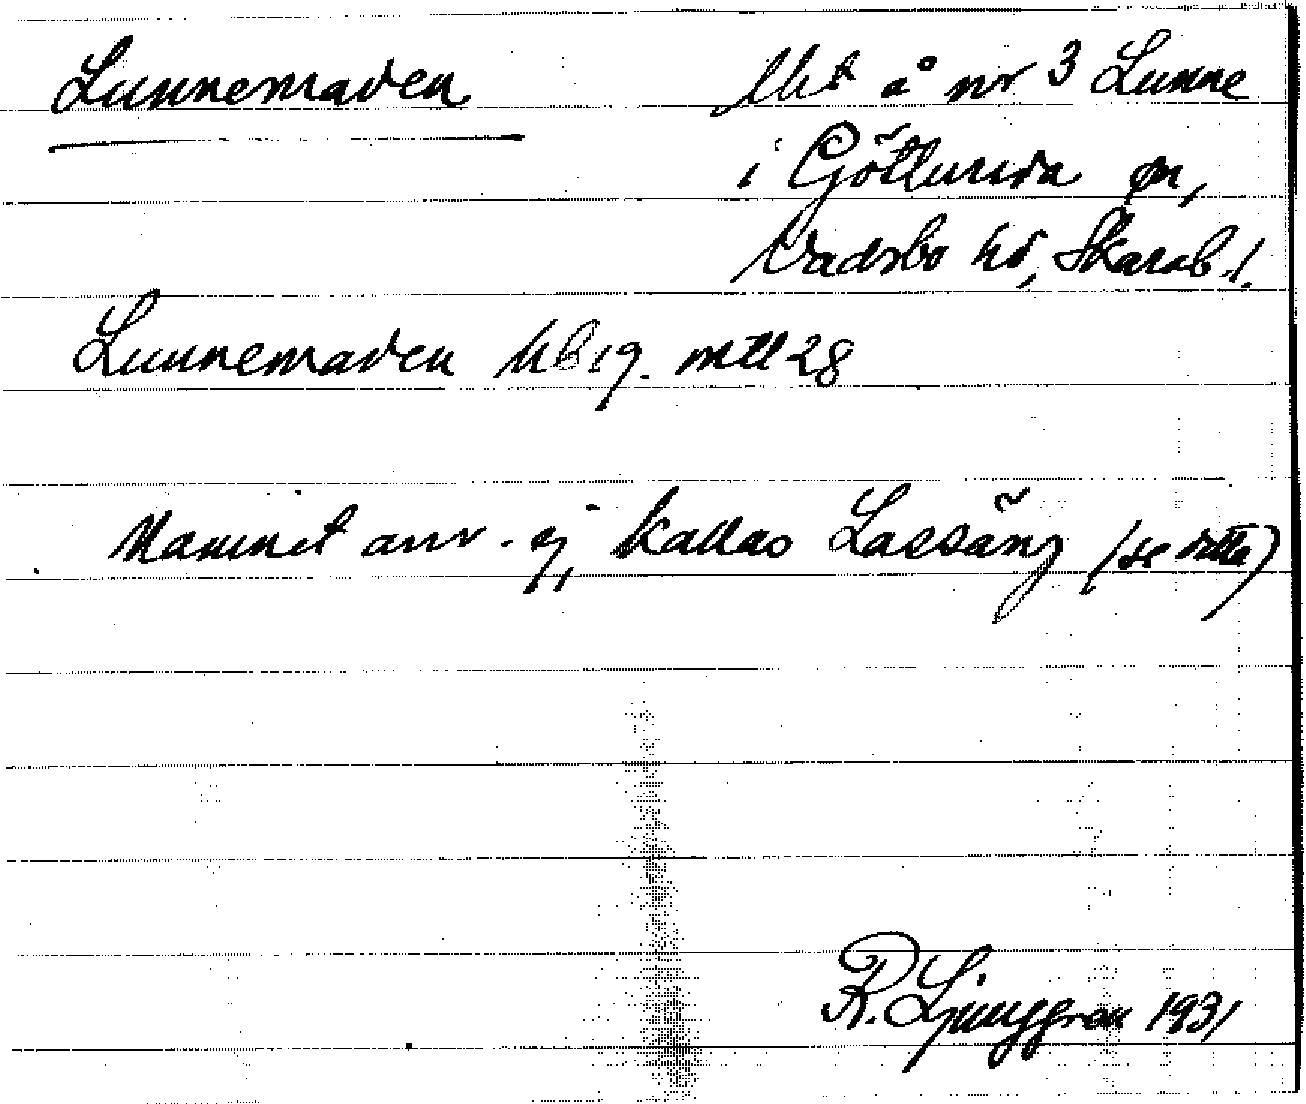 Lunnemaden
Ut å nr 3 Lunne
i Götlunda sn,
Vadsbo hd, Skarab. l.
Lunnemaden Ub 19. mtl 28
Namnet anv. ej, kallas Lassäng (se detta)
R. Ljunggren 1931